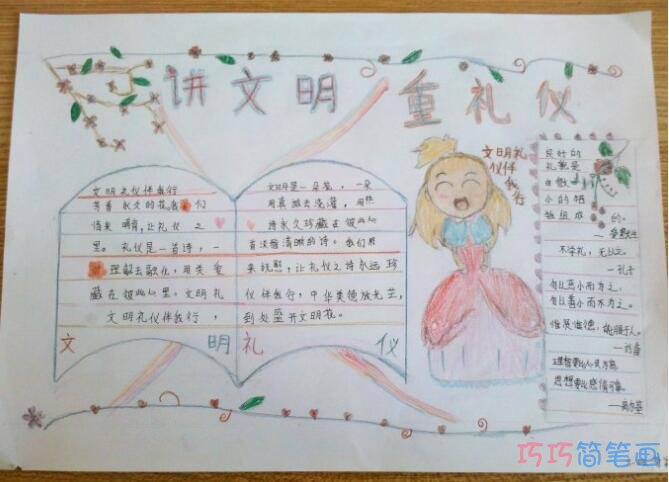 讲文明 重礼仪
文明礼仪伴我行
有着永久的花 我们
借来 晴 让礼仪之
里。礼仪是一首诗，一
理解去融化，用关爱
藏在彼此心里。文明礼
文明礼仪伴我行，
文明是一朵花，一朵
用真诚去浇灌，用热
诗永久珍藏在彼此心
首淡雅清晰的诗，我们用
来祝愿，让礼仪之诗永远珍
仪伴我行，中华美德放光芒，
到处盛开文明花。
文明礼仪
文明礼
仪伴
我行
良好的
礼貌是
由微
小的牺
牲组成的。
—爱默生
不学礼，无以立。
—孔子
勿以恶小而为之，
勿以善小而不为之。
惟贤惟德，能服于人。
—刘备
理智要比心灵为高，
思想要比感情可靠。
—高尔基
巧巧简笔画